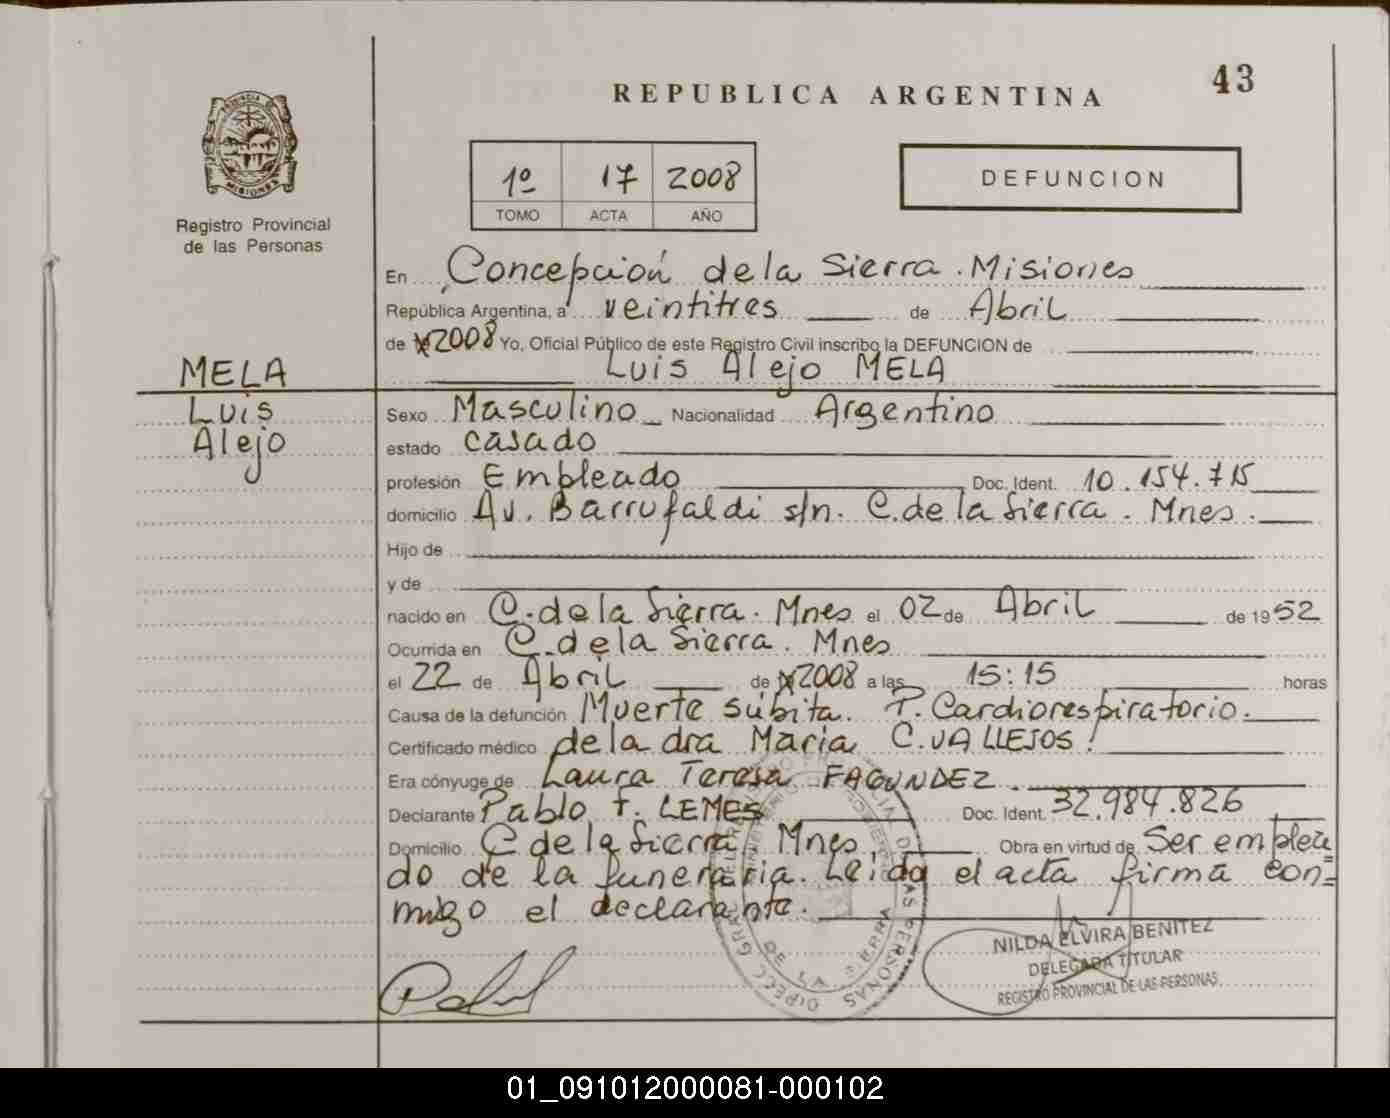 43
REPUBLICA ARGENTINA
PROVINCIA DE
MISIONES
Registro Provincial
de las Personas
1º 17 2008
TOMO ACTA AÑO
DEFUNCION
En Concepción de la Sierra. Misiones
República Argentina, a veintitres de Abril
de 2008 Yo, Oficial Público de este Registro Civil inscribo la DEFUNCION de
Luis Alejo MELA
MELA
Luis
Alejo
Sexo Masculino Nacionalidad Argentino
estado casado
profesión Empleado Doc. Ident. 10.154.715
domicilio Av. Barrufaldi s/n. C. de la Sierra. Mnes.
Hijo de
y de
nacido en C. de la Sierra. Mnes el 02 de Abril de 1952
Ocurrida en C. de la Sierra. Mnes
el 22 de Abril de 2008 a las 15:15 horas
Causa de la defunción Muerte súbita. P. Cardiorespiratorio.
Certificado médico de la dra Maria C. VALLEJOS.
Era cónyuge de Laura Teresa FAGUNDEZ.
Declarante Pablo F. LEMES Doc. Ident. 32.984.826
Domicilio C de la Sierra, Mnes, Obra en virtud de Ser emplea=
do de la funeraria. Leida el acta firma con=
migo el declarante.
NILDA ELVIRA BENITEZ
DELEGADA TITULAR
REGISTRO PROVINCIAL DE LAS PERSONAS
01_091012000081-000102